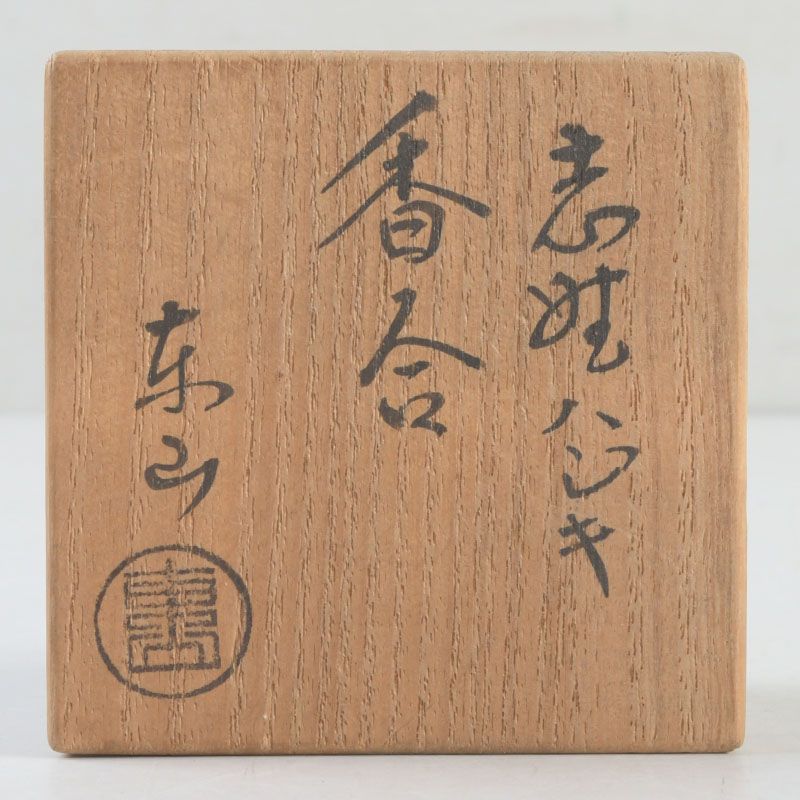 志野ハジキ
香合
東山
東山